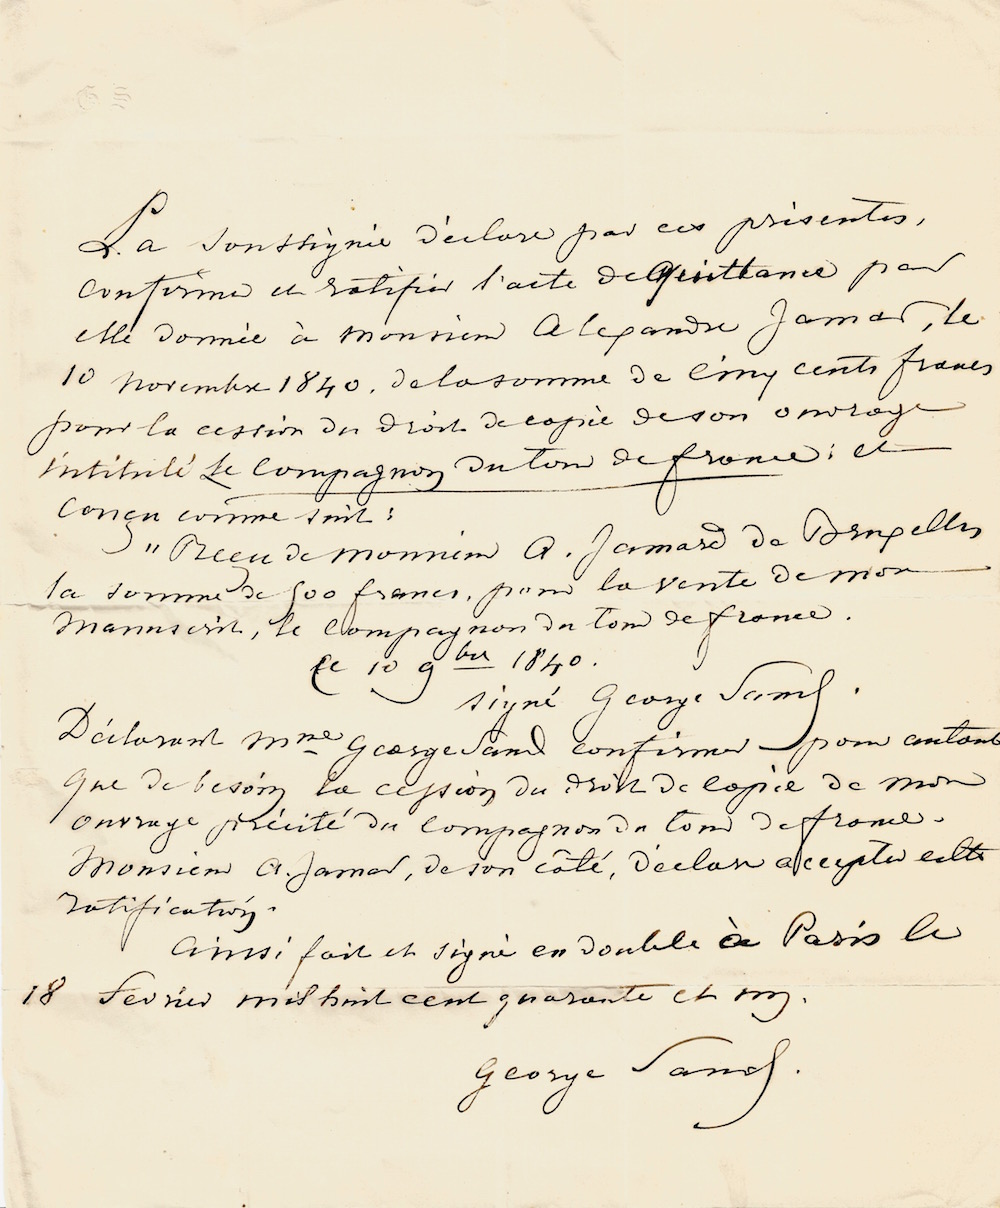 La soussignée déclare par ces présentes,
confirmer et ratifier l'acte de Quittance par
elle donnée à Monsieur Alexandre Jamar, le
10 novembre 1840. de la somme de Cinq cents francs
pour la cession du droit de copie de son ouvrage
intitulé Le Compagnon du tour de france: et
Conçu comme suit:
" Reçu de Monsieur A. Jamard de Bruxelles
la somme de 500 francs, pour la vente de mon
Manuscrit, le Compagnon du tour de france.
Le 10 9bre 1840.
signé George Sand.
Déclarant Mme George Sand confirmer pour autant
que de besoin la cession du droit de Copie de mon
ouvrage précité du Compagnon du tour de france.
Monsieur A. Jamar, de son côté, déclare accepter cette
ratification.
Ainsi fait et signé en double à Paris le
18 fevrier mil huit cent quarante et un.
George Sand.